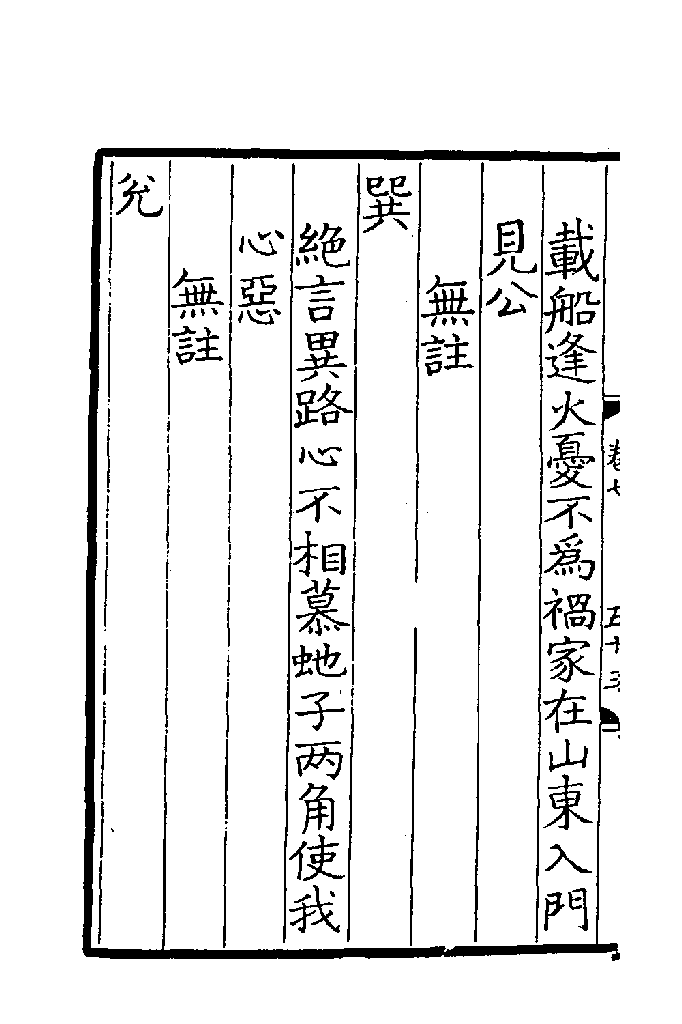 載船逢火憂不為禍家在山東入門
見公
無註
巽
絶言異路心不相慕虵子两角使我
心惡
無註
兊